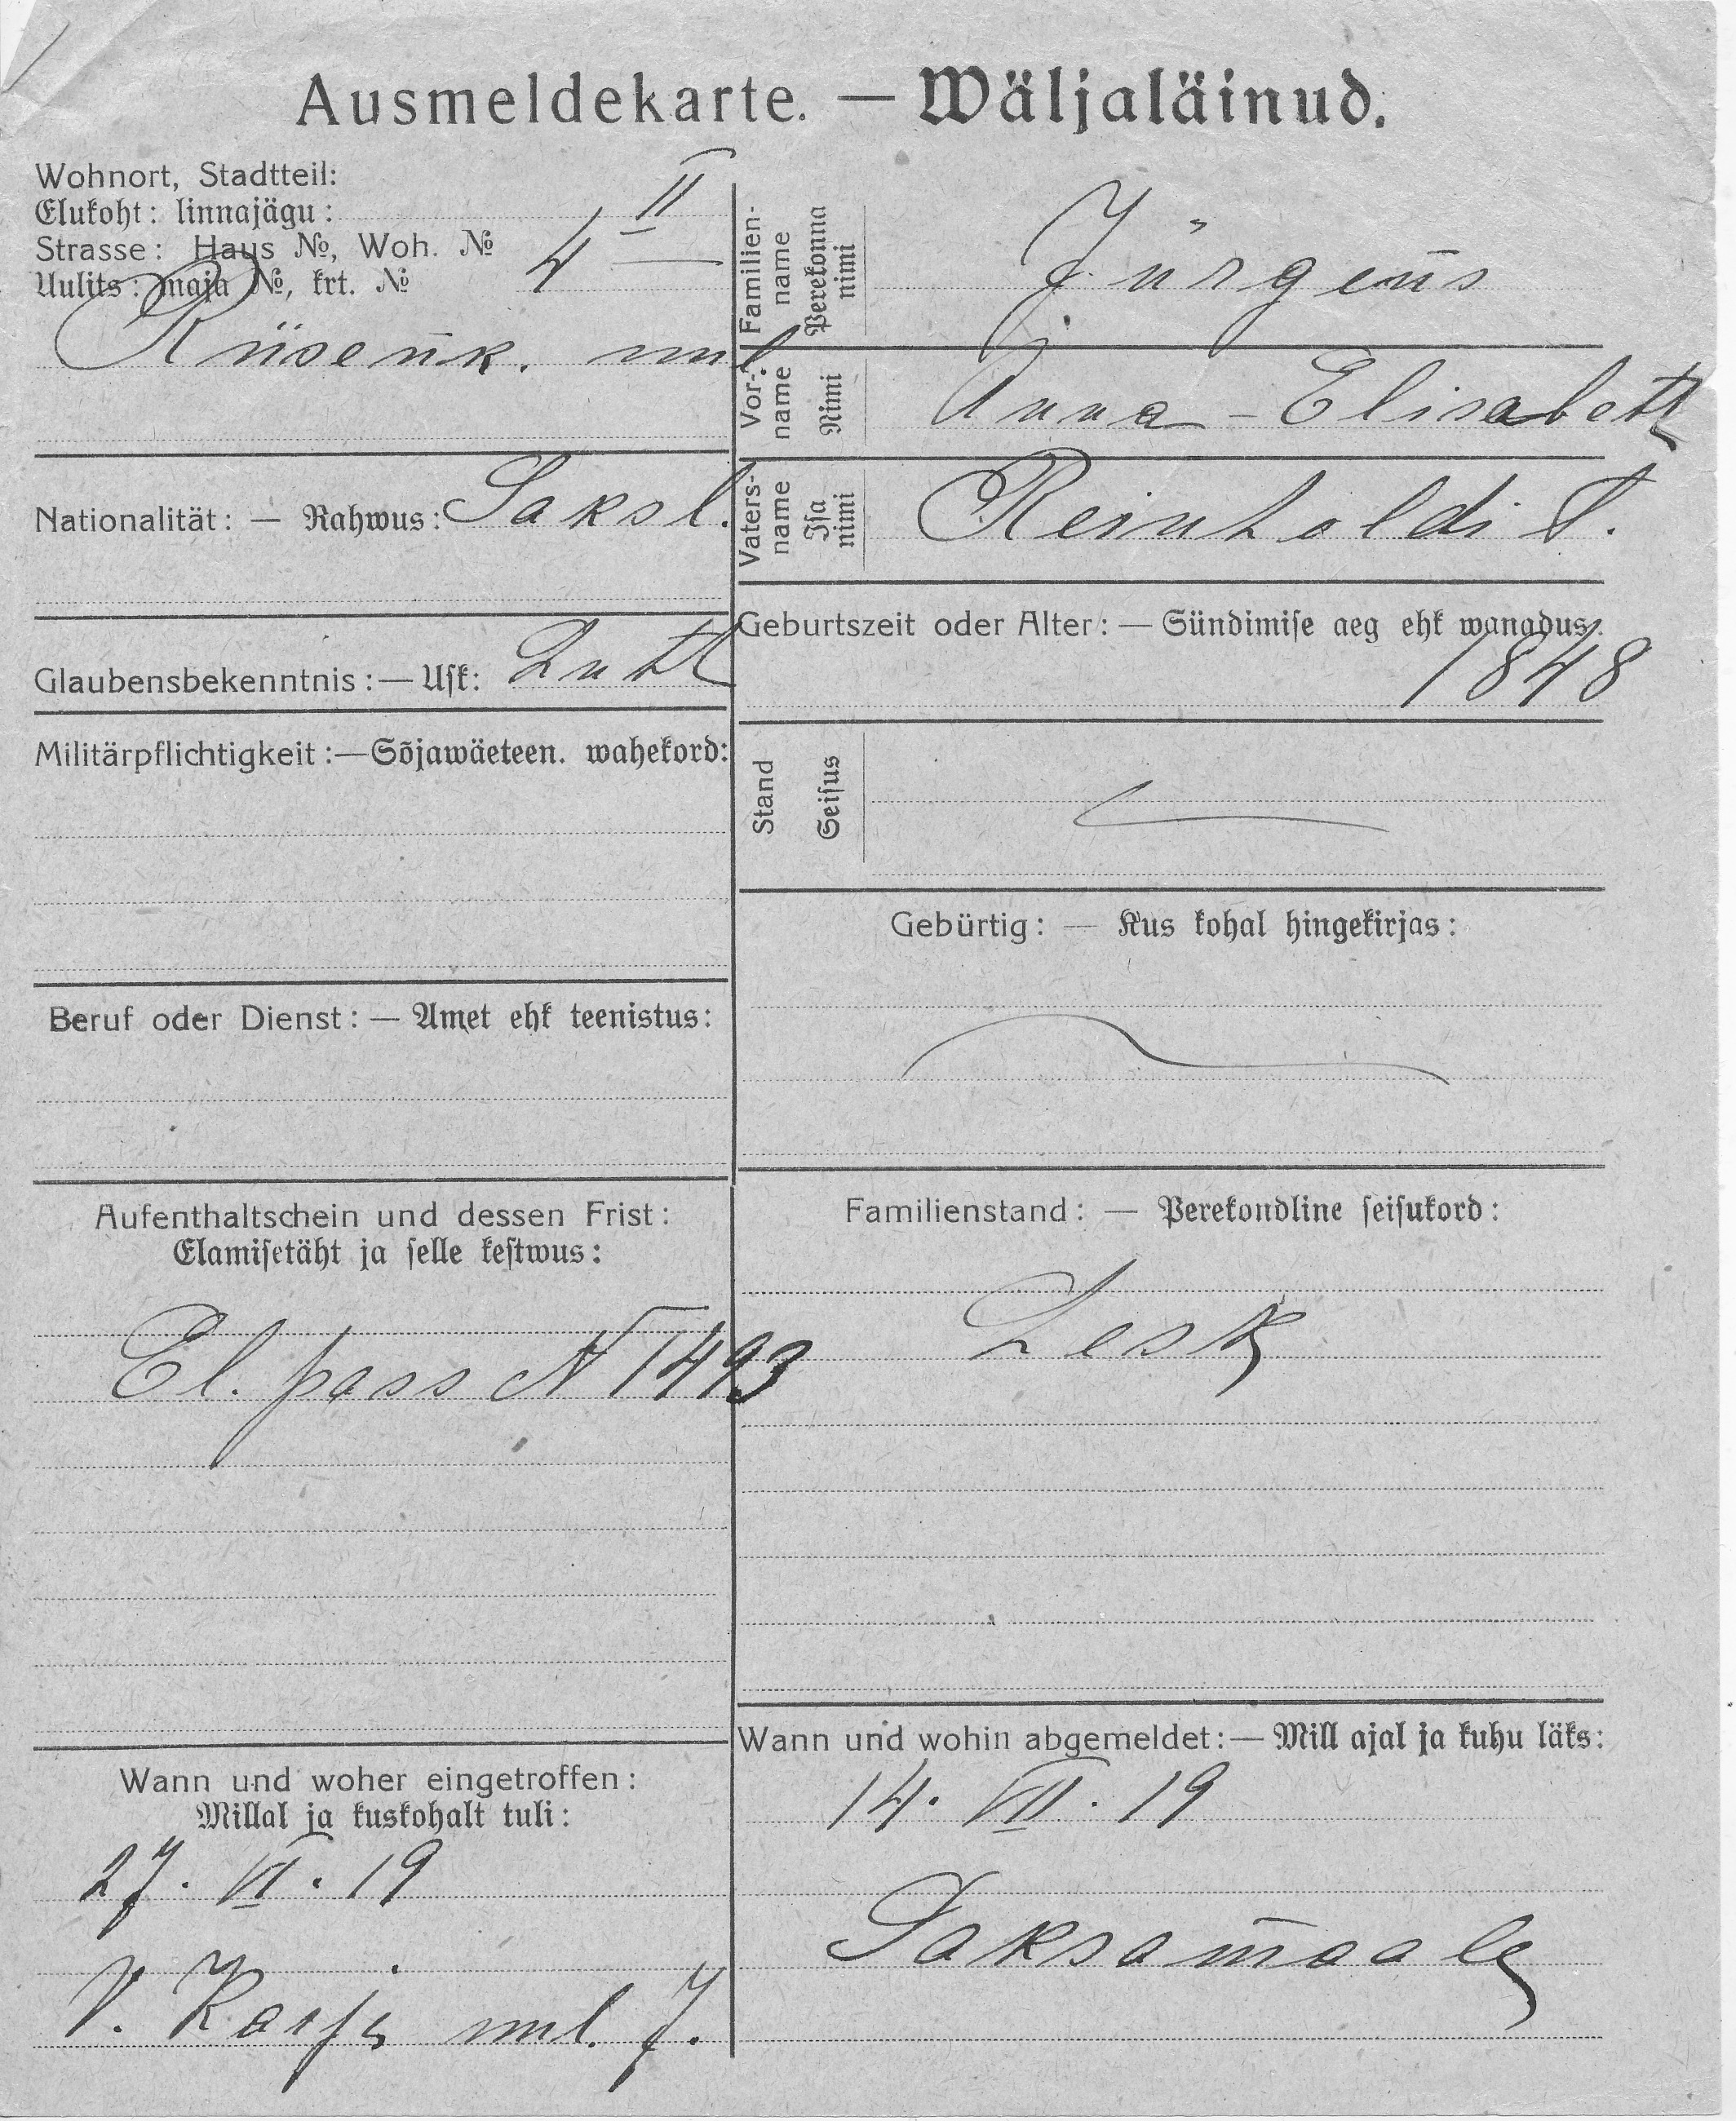 Ausmeldekarte. — Wäljaläinud.
Wohnort, Stadtteil:
Elukoht: linnajägu: II
Strasse: Haus №, Woh. №
Uulits: maja №, krt. № 4 —
uul.
Nationalität: — Rahwus: Saksl.
Glaubensbekenntnis: — Usk: Luth
Militärpflichtigkeit: — Sõjawäeteen. wahekord:
Beruf oder Dienst: — Amet ehk teenistus:
Aufenthaltschein und dessen Frist:
Elamisetäht ja selle kestwus:
El. pass N 1493
Wann und woher eingetroffen:
Millal ja kuskohalt tuli:
27. VI. 19
V. Karja uul. 7.
Familien-
name
Perekonna
nimi
Jürgens
Vor-
name
Nimi
Anna - Elisabeth
Vaters-
name
Isa
nimi
Reinholdi t.
Geburtszeit oder Alter: — Sündimise aeg ehk wanadus:
1848
Stand
Seisus
Gebürtig: — Kus kohal hingekirjas:
Familienstand: — Perekondline seisukord:
Lesk
Wann und wohin abgemeldet: — Mill ajal ja kuhu läks:
14. VII. 19
Saksamaale